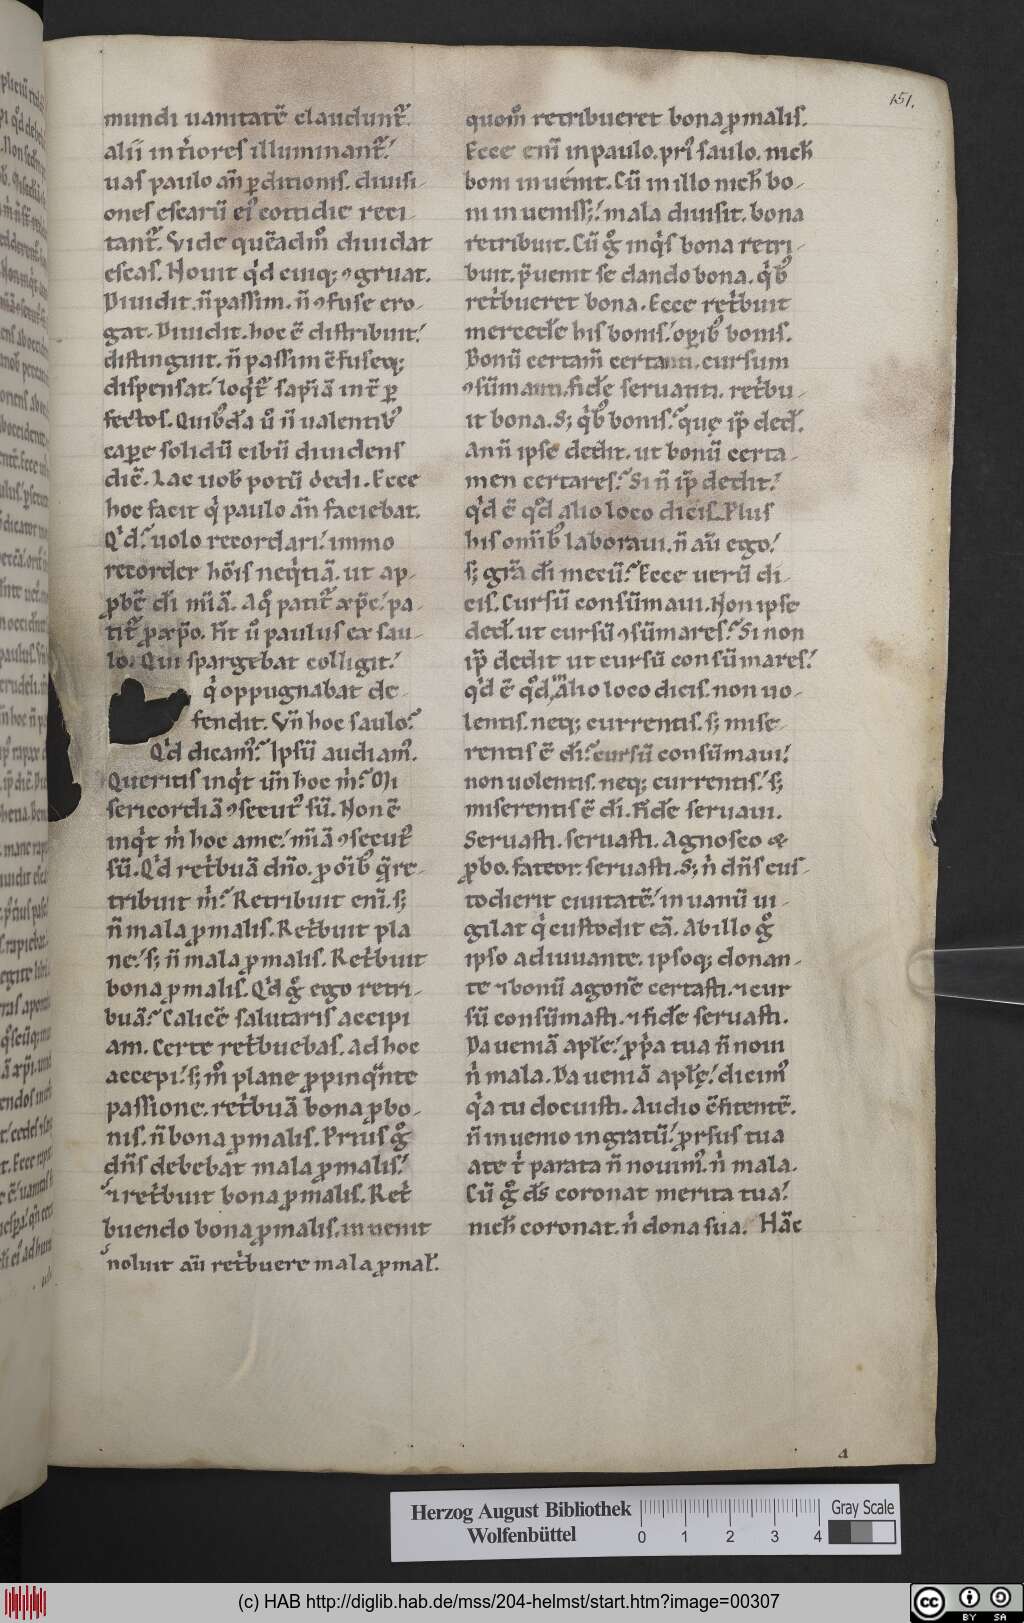 151.
mundi uanitatē claudunt̃.
alii int̓iores illuminant̃.
uas paulo añ p̱ditionis. diuisi-
ones escarū ei᷒ cottidie reci-
tant̃. Vide quēadm̄ diuidat
escas. Nouit qͥd cuiq; ꝯgruat.
Diuidit. n̄ passim. n̄ ꝯfuse ero-
gat. Diuidit. hoc ē distribuit.
distinguit. n̄ passim ꝯfuseq;
dispensat. loqͥt̃ sapīā int̃ ꝑ
fectos. Quib᷒dā ū n̄ ualentib᷒
capere solidū cibū diuidens
dic̄. Lac uob̄ potū dedi. Ecce
hoc facit qͥ paulo añ faciebat.
Qͥd. uolo recordari. immo
recorder hōis neqͥtiā. ut ap-
ꝓbē dī mīā. A qͦ patit̃ xp̄c. pa-
tit̃ ꝓ xp̄o. Fit ū paulus ex sau-
lo. Qui spargebat colligit.
qͥ oppugnabat de-
fendit. Vn̄ hoc saulo.
Qͥd dicam᷒. Ipsū audiam᷒.
Queritis inqͥt un̄ hoc m̓. Mi
sericordiā ꝯsecut᷒ sū. Non ē
inqͥt m̓ hoc a me. mīā ꝯsecut᷒
sū. Qͥd ret̓buā dn̄o. ꝓ oīb᷒ q̄ re-
tribuit m̓. Retribuit enī. s;
n̄ mala ꝓ malis. Ret̓buit pla
ne. s; n̄ mala ꝓ malis. Ret̓buit
bona ꝓ malis. Qͥd gͦ ego retri-
buā. Calicē salutaris accipi
am. Certe ret̓buebas. ad hoc
accepi. s; m̊ plane ꝓpinquante
passione. ret̓buā bona ꝓ bo-
nis. n̄ bona ꝓ malis. Prius gͦ
dn̄s debebat mala ꝓ malis.
⁊ ret̓buit bona ꝓ malis. Ret̓
buendo bona ꝓ malis. inuenit
noluit aū ret̓buere mala ꝓ mal̄.
quom̊ retribueret bona ꝓ malis.
Ecce enī in paulo. pri᷒ saulo. nich̄
boni inuenit. Cū in illo nich̄ bo-
ni inueniss;. mala diuisit. bona
retribuit. Cū gͦ inqͥs bona retri-
buit. p̄uenit se dando bona. qͥb᷒
ret̓bueret bona. Ecce ret̓buit
mercedē his bonis. opib᷒ bonis.
Bonū certam̄ certanti. cursum
ꝯsūmanti. fidē seruanti. ret̓bu-
it bona. S; qͥb᷒ bonis. quę ip̄ ded̄.
An n̄ ipse dedit. ut bonū certa-
men certares. Si n̄ ip̄ dedit.
qͥd ē qͦd alio loco dicis. Plus
his omīb᷒ laboraui. n̄ aū ego.
s; gr̄a dī mecū. Ecce uerū di-
cis. Cursū consūmaui. Non ipse
ded̄. ut cursū ꝯsūmares. Si non
ip̄ dedit ut cursū consūmares.
qͥd ē qͦd alio loco dicis. non uo-
lentis. neq; currentis. s; mise-
rentis ē dī. cursū consūmaui.
non uolentis. neq; currentis. s;
miserentis ē dī. Fidē seruaui.
Seruasti. seruasti. Agnosco &
ꝓbo. fateor. seruasti. S; n̓ dn̄s cus-
todierit ciuitatē. in uanū ui-
gilat qͥ custodit eā. Ab illo gͦ
ipso adiuuante. ipsoq; donan-
te ⁊ bonū agonē certasti. ⁊ cur
sū consūmasti. ⁊ fidē seruasti.
Da ueniā apl̄e. ꝓp̓a tua n̄ noui
n̓ mala. Da ueniā apl̄ę. dicim᷒
qͥa tu docuisti. Audio ꝯfitentē.
n̄ inuenio ingratū. ꝓrsus tua
a te t̓ parata n̄ nouim᷒. n̓ mala.
Cū gͦ dс̄ coronat merita tua.
nich̄ coronat. n̓ dona sua. Hāc
Herzog August Bibliothek
Wolfenbüttel
0 1 2 3 4
Gray Scale
(c) HAB http://diglib.hab.de/mss/204-helmst/start.htm?image=00307
cc BY SA